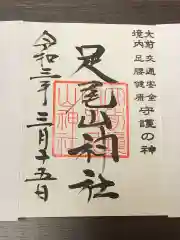 大前 交通安全
境内 足腰健康
守護の神
足尾山神社
令和三年 三月十五日